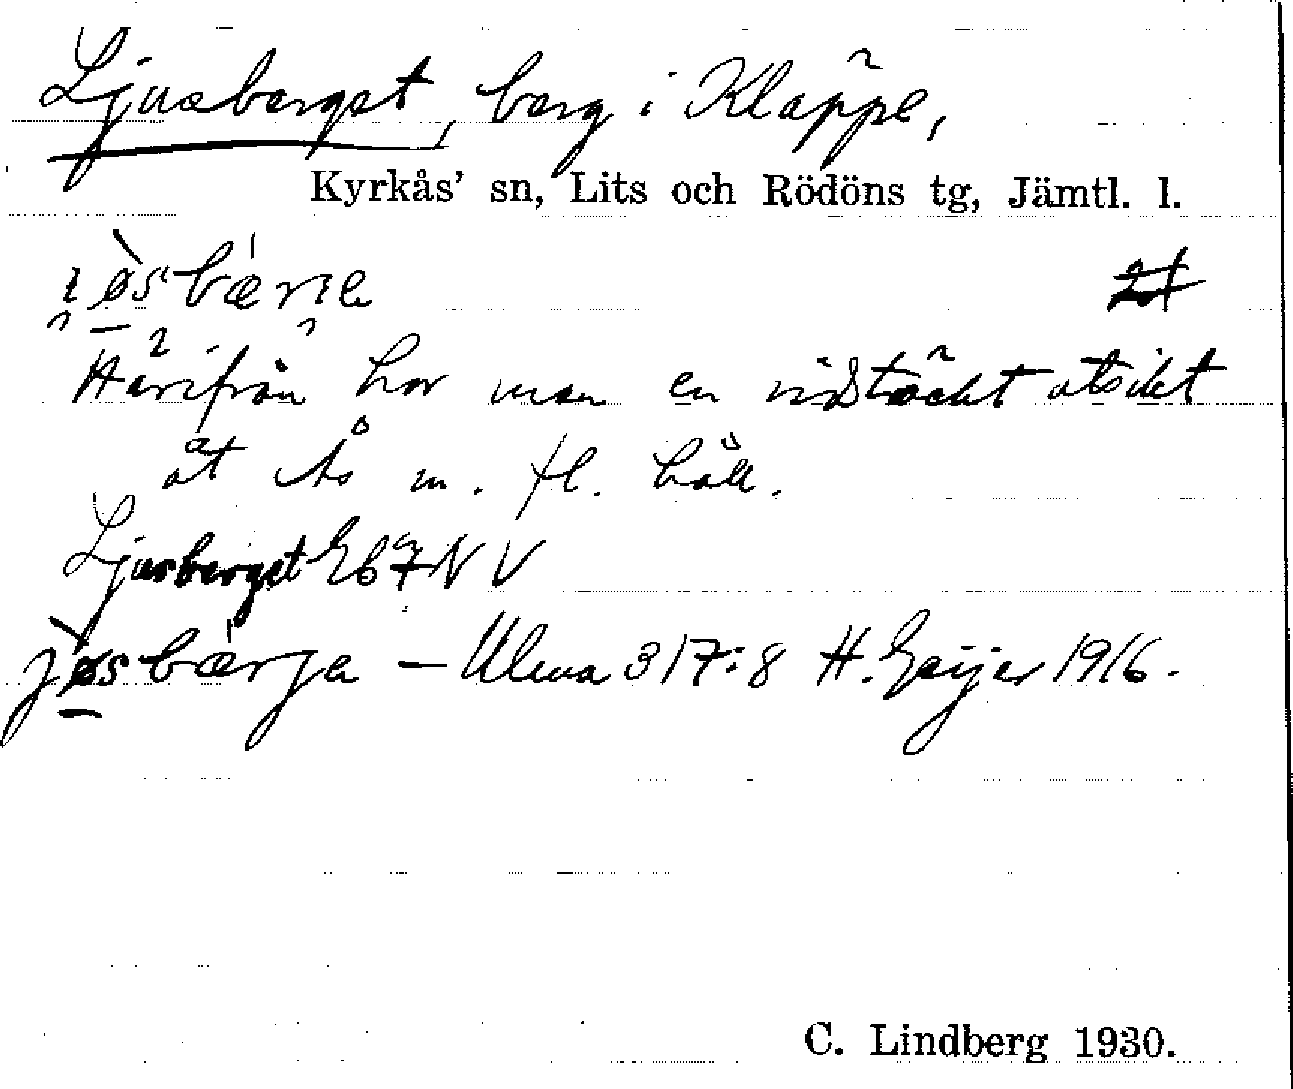 Ljusberget, berg i Kläppe,
Kyrkås' sn, Lits och Rödöns tg, Jämtl. l.
Härifrån har man en vidsträckt utsikt
åt Ås m. fl. håll.
Ljusberget Eb 7 NV
jøsbærja — Ulma 317:8 H. Geijer 1916.
C. Lindberg 1930.